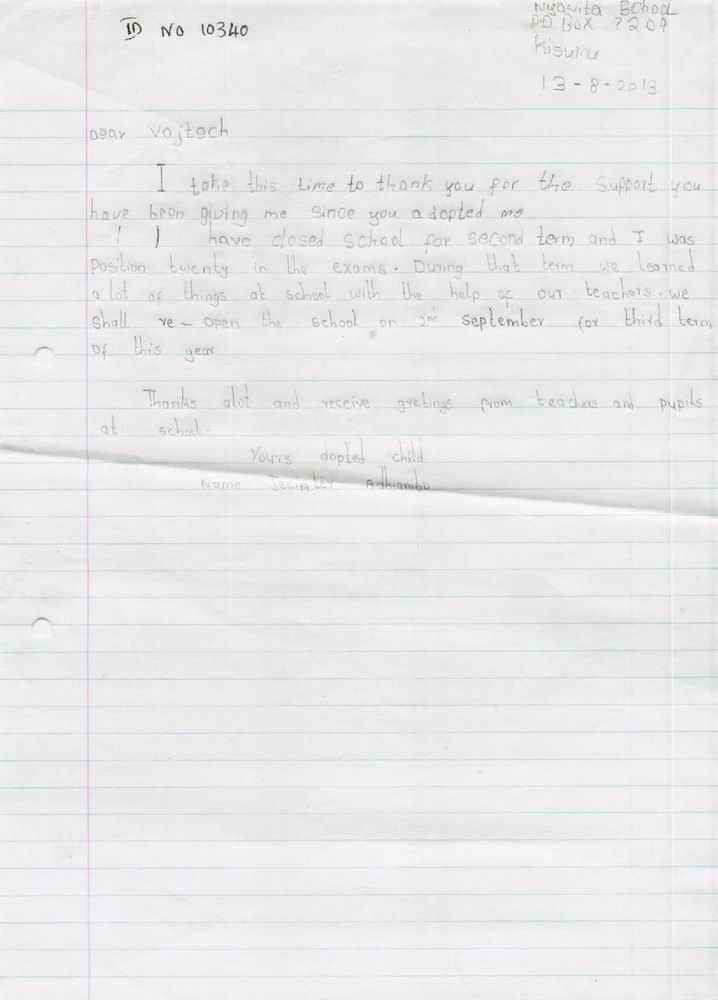 ID NO 10340
Nyawita School
PO BOX 7209
Kisumu
13-8-2013
Dear Vojtech
I take this time to thank you for the support you
have been giving me since you adopted me
I have closed school for second term and I was
Position twenty in the exams. During that term we learned
a lot of things at school with the help of our teachers. we
Shall re-open the school on 2nd september for third term
of this year
Thanks alot and receive gretings from teachers and pupils
at school.
Yours dopted child
Name Adhiambo